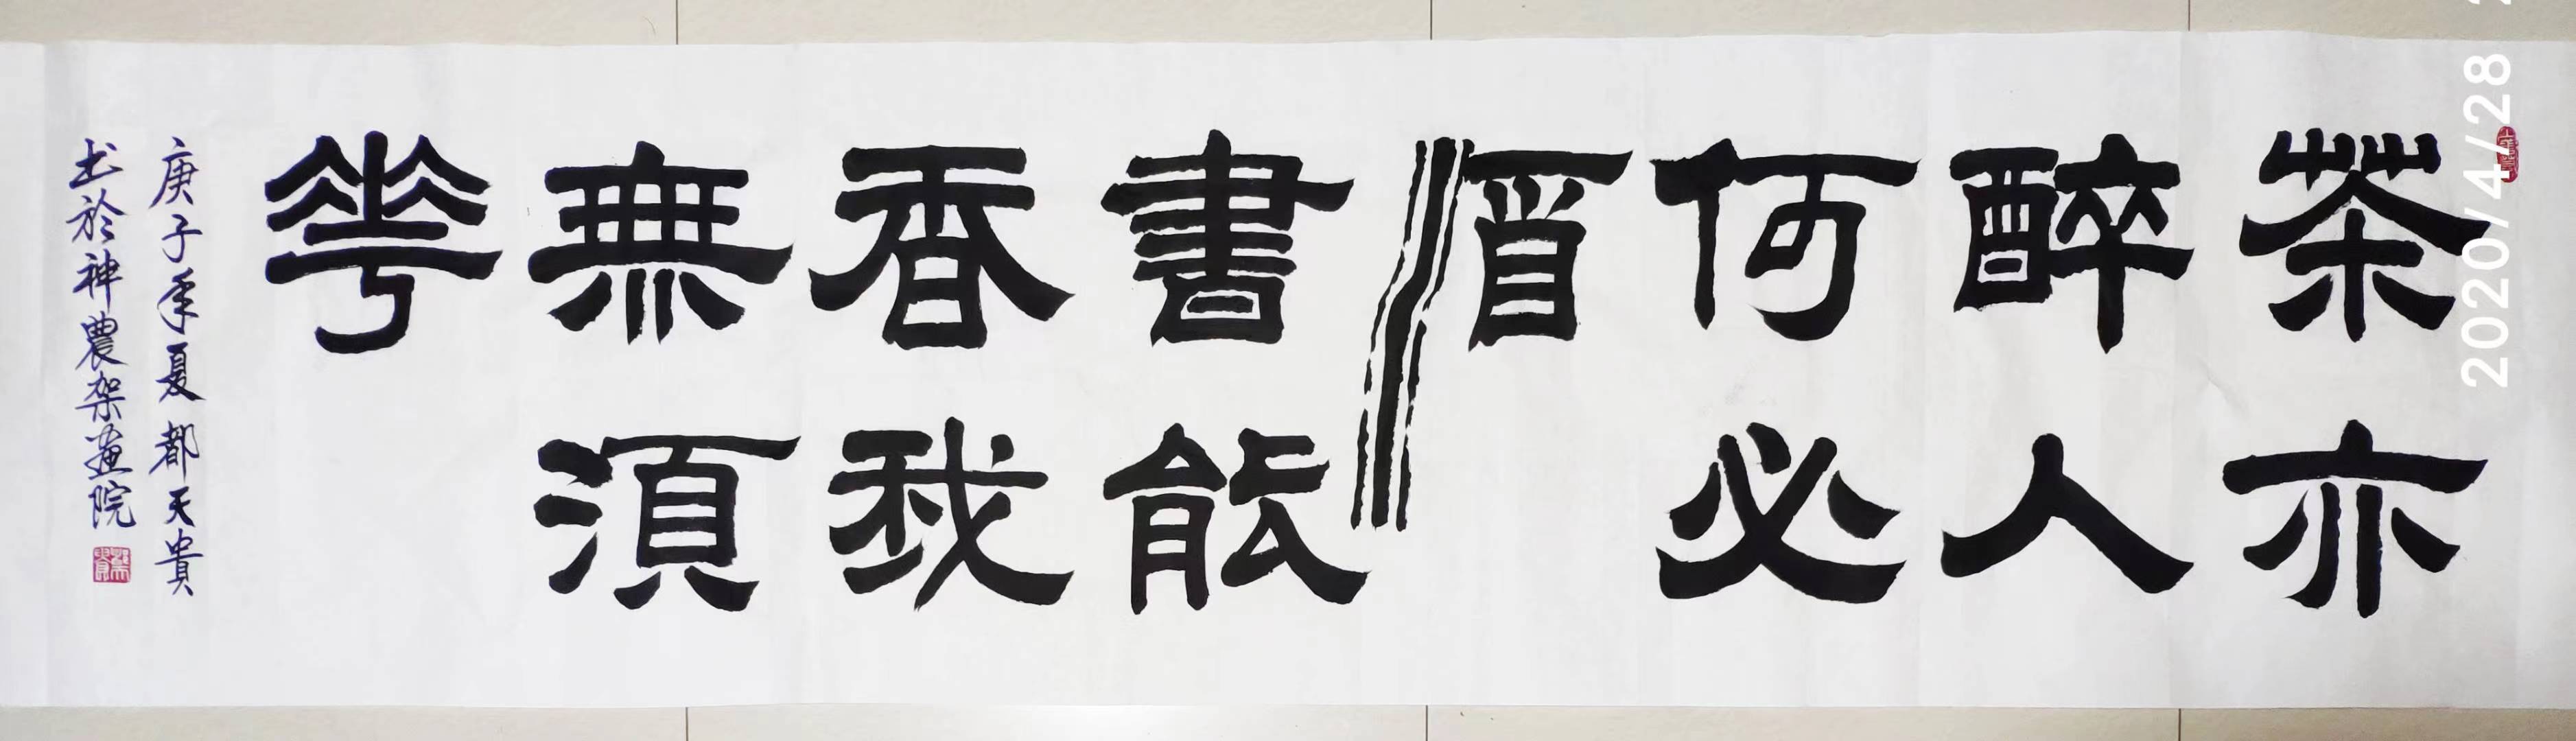 茶亦
醉人
何必
酒
書能
香我
無須
華
庚子年夏都天貴
书於神農架畫院
2020/4/28